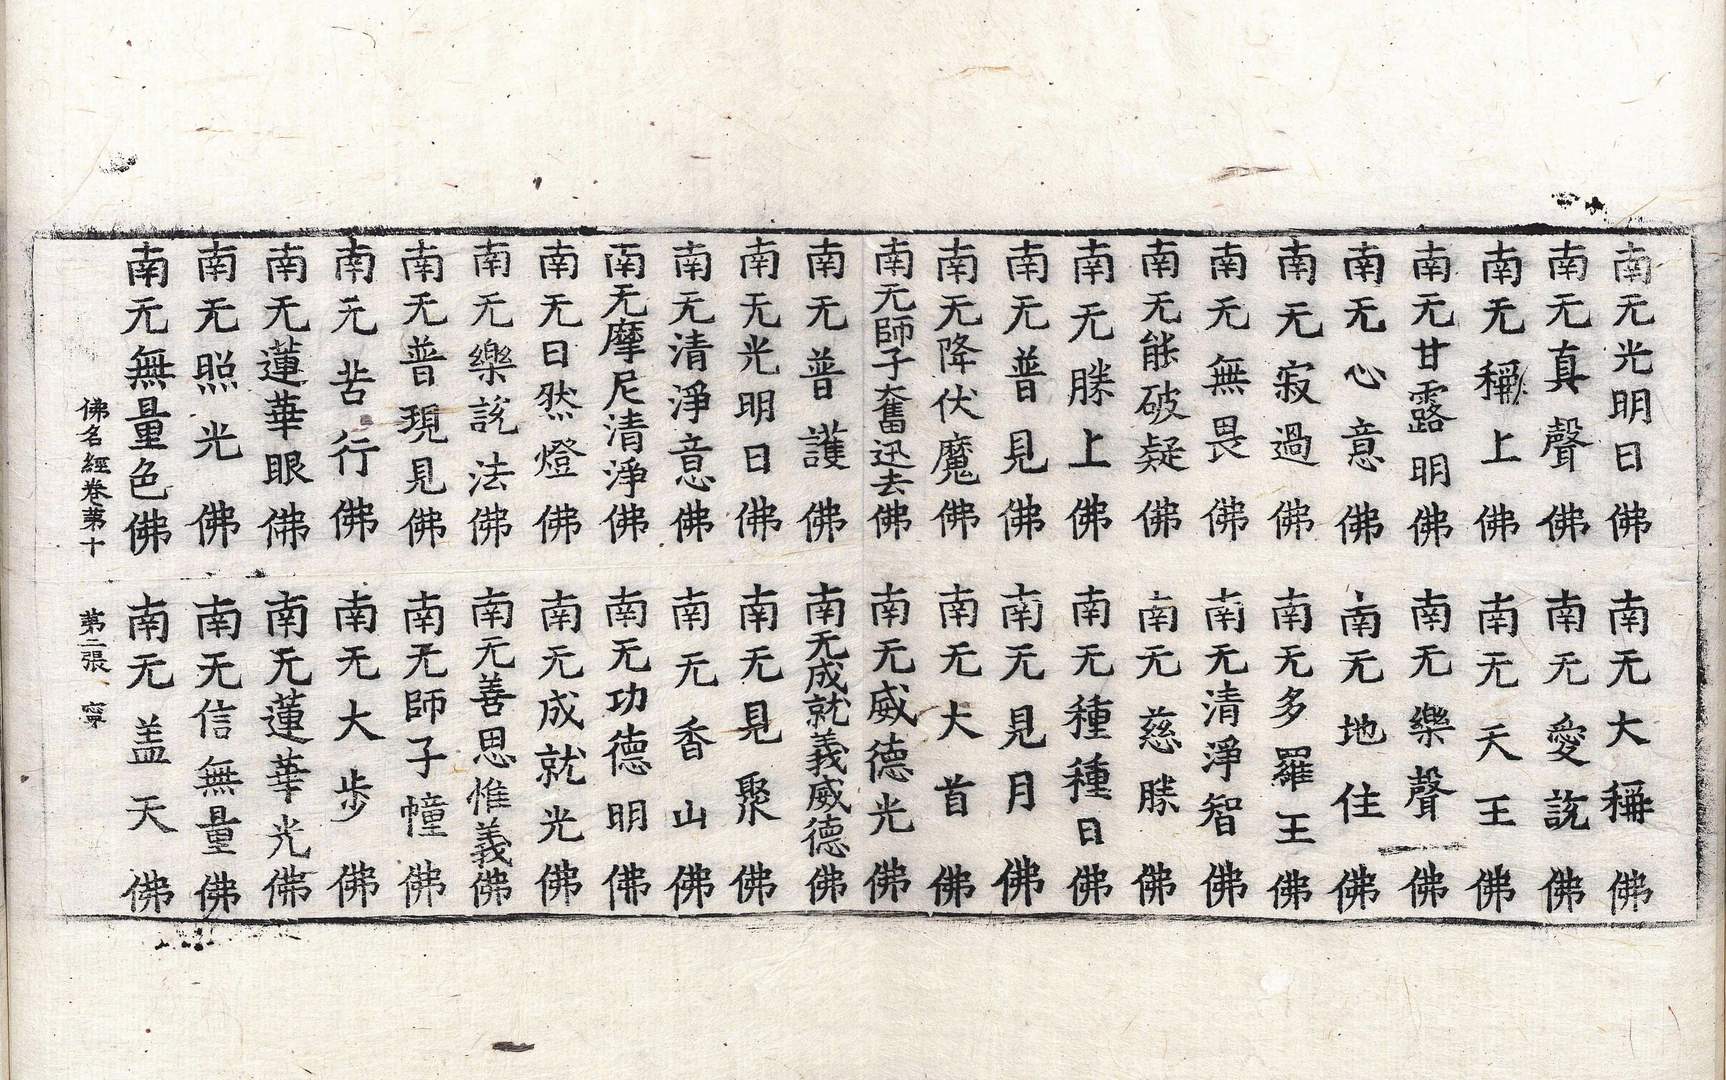 南无光明日佛　南无大稱佛
南无真聲佛　南无愛說佛
南无稱上佛　南无天王佛
南无甘露明佛　南无樂聲佛
南无心意佛　南无地住佛
南无寂過佛　南无多羅王佛
南无無畏佛　南无清淨智佛
南无能破疑佛　南无慈勝佛
南无勝上佛　南无種種日佛
南无普見佛　南无見月佛
南无降伏魔佛　南无大首佛
南无師子奮迅去佛　南无威德光佛
南无普護佛　南无成就義威德佛
南无光明日佛　南无見聚佛
南无清淨意佛　南无香山佛
南无摩尼清淨佛　南无功德明佛
南无日然燈佛　南无成就光佛
南无樂說法佛　南无善思惟義佛
南无普現見佛　南无師子幢佛
南无苦行佛　南无大步佛
南无蓮華眼佛　南无蓮華光佛
南无照光佛　南无信無量佛
南无無量色佛　南无盖天佛
佛名經卷苐十　苐二張　寧